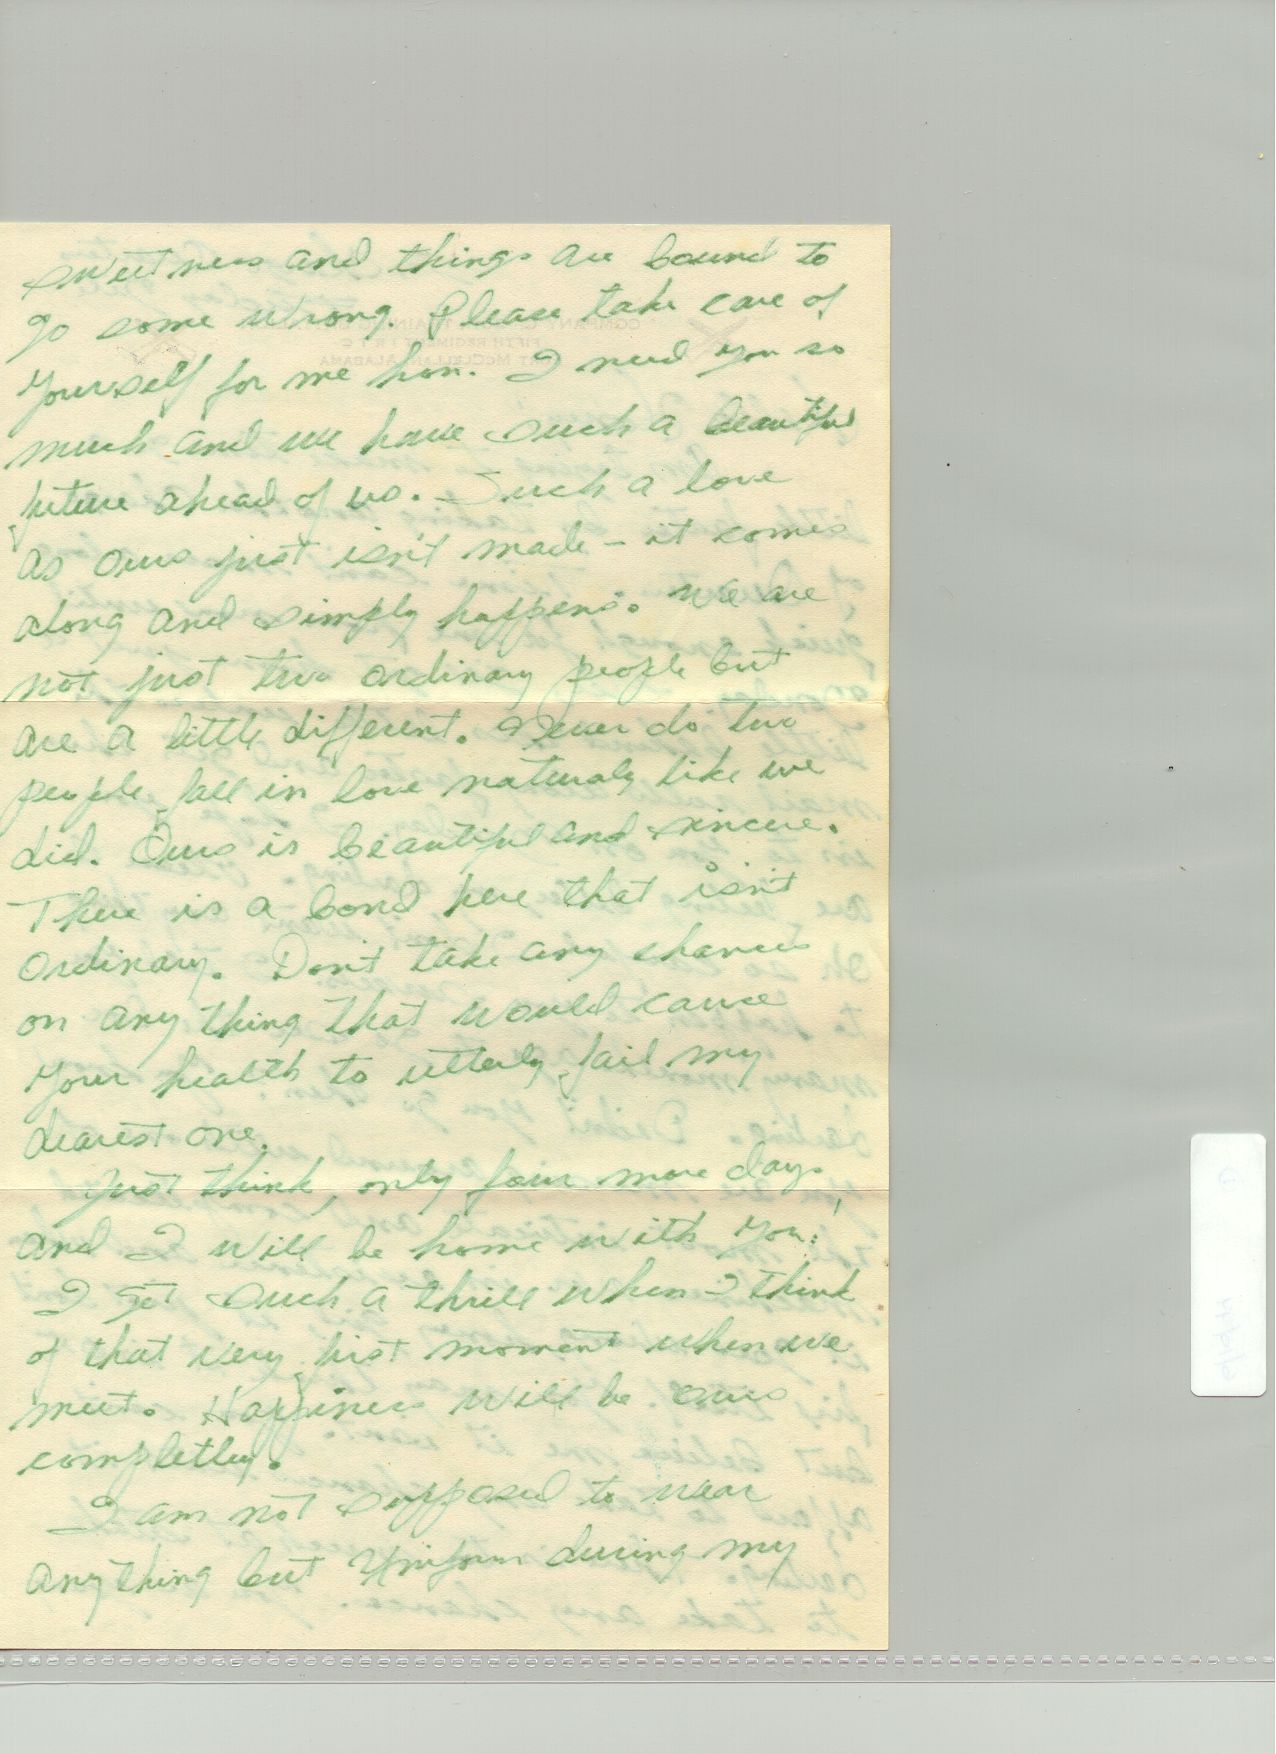 sweetness and things are bound to
go some wrong. Please take care of
yourself for me hon. I need you so
much and we have such a beautiful
future ahead of us. Such a love
as ours just isn't made - it comes
along and simply happens. We are
not just two ordinary people but
are a little different. Never do two
people fall in love naturaly like we
did. Ours is beautiful and sincere.
There is a bond here that isn't
ordinary. Don't take any chances
on any thing that would cause
your health to utterly fail my
dearest one.
Just think, only four more days
and I will be home with you!
I get such a thrill when I think
of that very first moment when we
meet. Happiness will be ours
completley.
I am not supposed to wear
any thing but Uniform during my